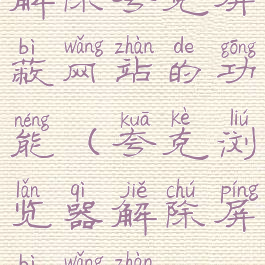 解除夸克屏
bì wǎng zhàn de gōng
蔽网站的功
néng kuā kè liú
能（夸克浏
lǎn qì jiě chú píng
览器解除屏
bì wǎng zhàn